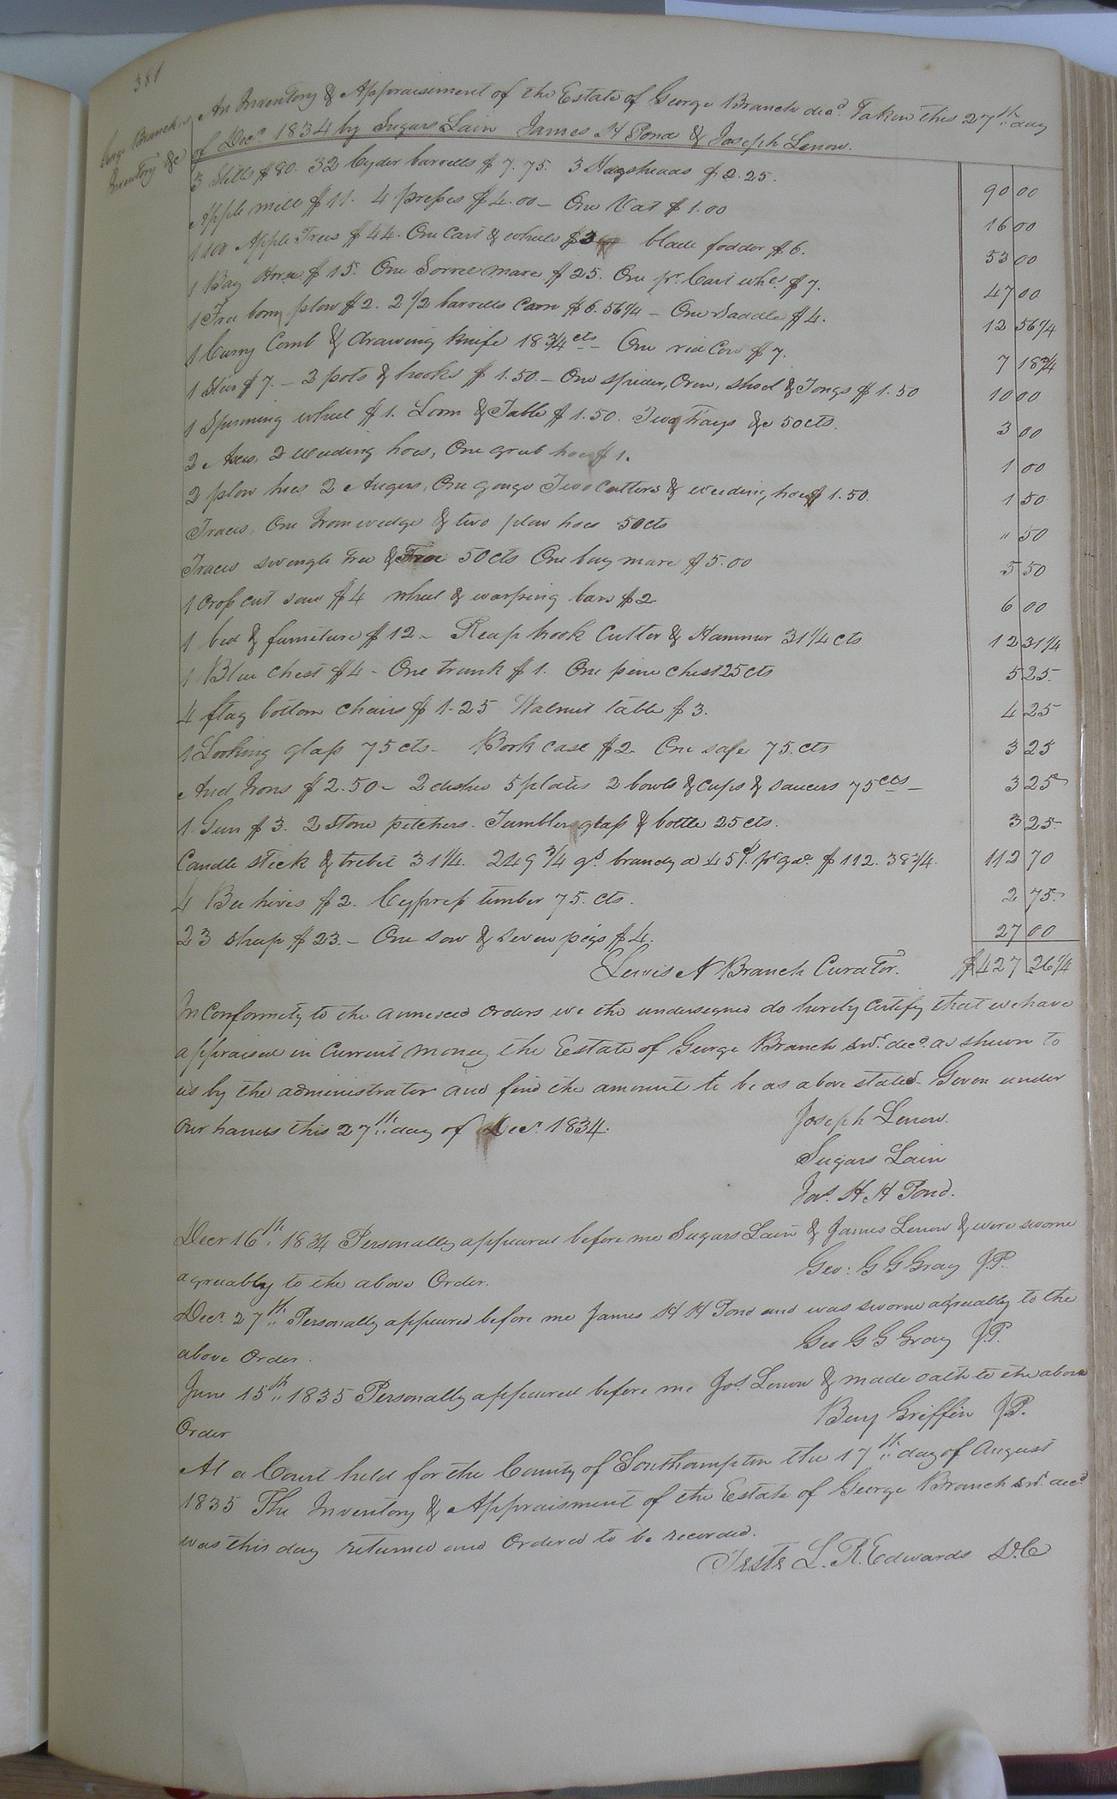 381
George Branch's
Inventory &c
An Inventory & Appraisement of the Estate of George Branch decd. Taken this 27th day
of Decr. 1834 by Sugars Lain James H Pond & Joseph Lenow.
3 Stills $80. 32 Cyder barrells $7.75. 3 Hogsheads $2.25. 90 00
Apple mill $11. 4 presses $4.00 - One Vat $1.00 16 00
1100 Apple Trees $44. One Cart & wheels $3 blade fodder $6. 53 00
1 Bay Horse $15. One Sorrel mare $25. One pr. Cart whs. $7. 47 00
1 Free born plow $2. 2 1/2 barrells Corn $6.56 1/4 - One Saddle $4. 12 56 1/4
1 Curry Comb & drawing knife 18 3/4 cts - One red Cow $7. 7 18 3/4
1 Steer $7. - 3 pots & hooks $1.50 - One spider, Oven, shovel & Tongs $1.50 10 00
1 Spinning wheel $1. Loom & Table $1.50. Two Trays &c 50 cts. 3 00
2 Axes, 2 weeding hoes, One grub hoe $1. 1 00
2 plow hoes 2 Augers, One gouge Two Cutters & weeding hoes $1.50. 1 50
Traces, One Iron wedge & two plow hoes 50 cts " 50
Traces swingle tree & 50 cts One bay mare $5.00 5 50
1 Cross cut saw $4 wheel & warping bars $2 6 00
1 bed & furniture $12 - Reap hook Cutter & Hammer 31 1/4 cts 12 31 1/4
1 Blue chest $4 - One trunk $1. One pine chest 25 cts 5 25
4 flag bottom chairs $1.25 Walnut table $3. 4 25
1 Looking glass 75 cts - Book case $2. One safe 75. cts 3 25
And Irons $2.50 - 2 dishes 5 plates 2 bowls & cups & saucers 75 cts - 3 25
1 Gun $3. 2 Stone pitchers. Tumblers glass & bottle 25 cts. 3 25
Candle stick & trebit 31 1/4. 249 3/4 gs. brandy @ 45 pr gal. $112.38 3/4. 112 70
4 Bee hives $2. Cypress timber 75. cts. 2 75
23 sheep $23. - One sow & seven pigs $4. 27 00
Lewis N Branch Curator. $427 26 1/4
In Conformity to the annexed Orders we the undersigned do hereby Certify that we have
appraised in Current money the Estate of George Branch Snr. decd. as shewn to
us by the administrator and find the amount to be as above stated. Given under
our hands this 27th day of Decr. 1834.
Joseph Lenow.
Sugars Lain
Jas. H H Pond.
Decr 16th. 1834 Personally appeared before me Sugars Lain & James Lenow & were sworn
agreeably to the above Order.
Geo: G G Gray J.P.
Decr. 27th. Personally appeared before me James H H Pond and was sworn agreeably to the
above Order.
Geo G G Gray J.P.
June 15th. 1835 Personally appeared before me Jos. Lenow & made oath to the above
Order
Benj Griffin J.P.
At a Court held for the County of Southampton the 17th. day of August
1835 The Inventory & Appraisment of the Estate of George Branch Snr. decd
was this day returned and Ordered to be recorded.
Teste L. R. Edwards D.C